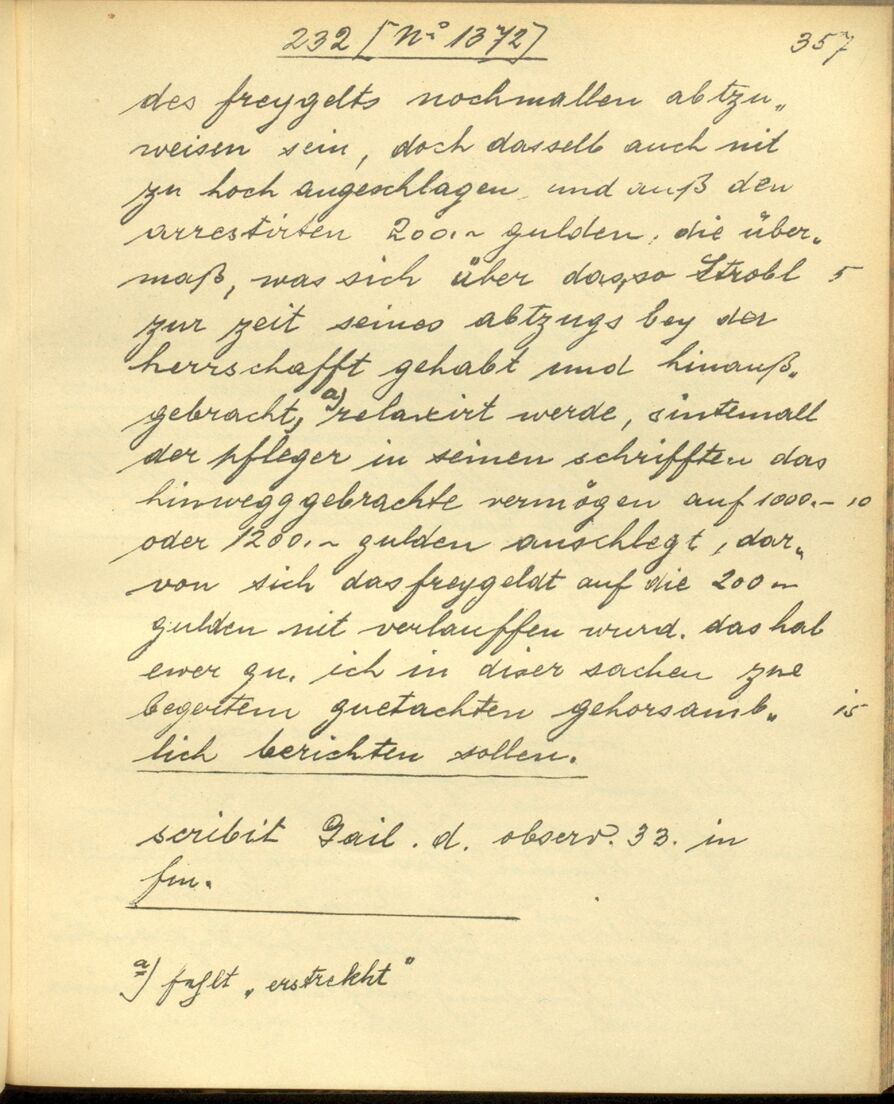 232 [No 1372] 357
des freygelts nochmallen abtzu„
weisen sein, doch dasselb auch nit
zu hoch angeschlagen und auß den
arrestirten 200.~ gulden, die über„
maß, was sich über das, so Strobl 5
zur zeit seines abtzugs bey der
herrschafft gehabt und hinauß„
gebracht, a) relaxirt werde, sintemall
der pfleger in seinen schrifften das
hinwegggebrachte vermögen auf 1000.– 10
oder 1200.~ gulden anschlegt, dar„
von sich das freygeldt auf die 200 ~
gulden nit verlauffen wurd. das hab
ewer gn. ich in diser sachen zue
begertem guetachten gehorsamb„ 15
lich berichten sollen.
scribit Gail. d. observ. 33. in
fin.
a) fehlt „erstrekht“